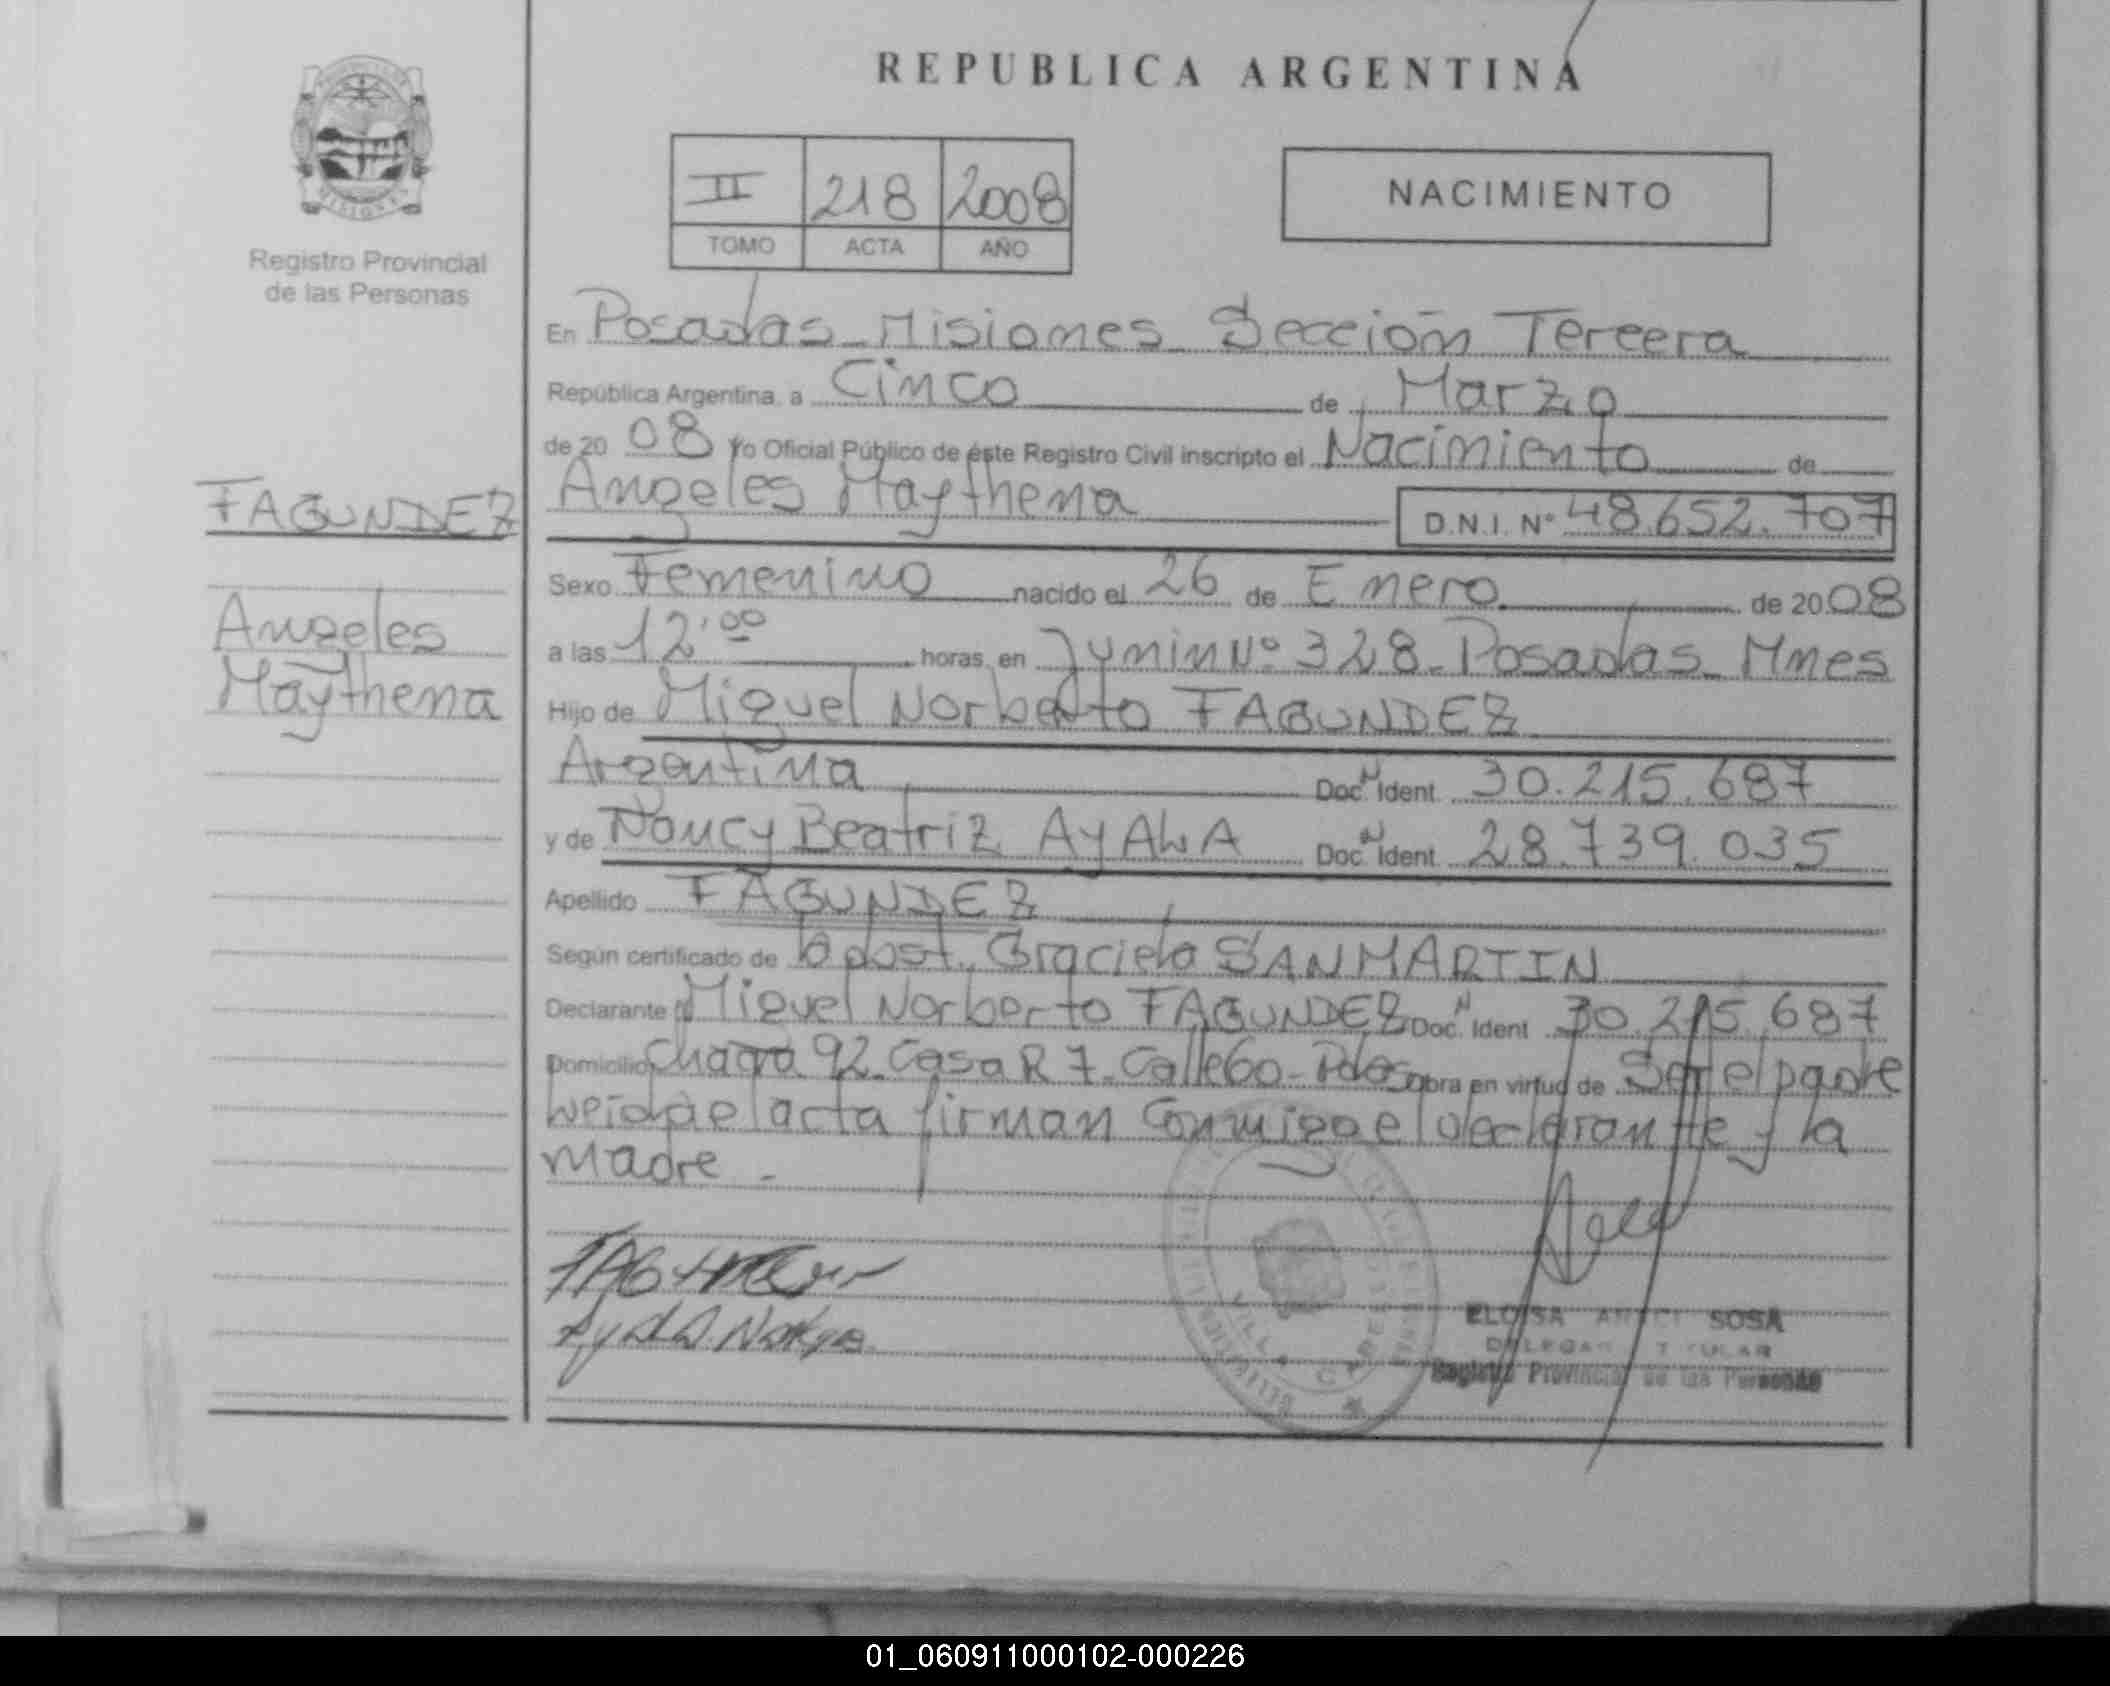 REPUBLICA ARGENTINA
II 218 2008
TOMO ACTA AÑO
NACIMIENTO
Registro Provincial
de las Personas
FAGUNDEZ
Angeles
Maythena
En Posadas - Misiones Sección Tercera
República Argentina, a Cinco de Marzo
de 20 08 Yo Oficial Público de éste Registro Civil inscripto el Nacimiento de
Angeles Maythena D.N.I. Nº 48.652.707
Sexo Femenino nacido el 26 de Enero de 20 08
a las 12'00 horas, en Junin Nº 328 - Posadas - Mnes
Hijo de Miguel Norberto FAGUNDEZ
Argentina Doc. Ident 30.215.687
y de Nancy Beatriz AyALA Doc. Ident 28.739.035
Apellido FAGUNDEZ
Según certificado de Obst. Graciela SANMARTIN
Declarante Miguel Norberto FAGUNDEZ Doc. Ident 30.215.687
Domicilio Chacra 92 - Casa R 7 - Calle 60 - Pdas obra en virtud de Ser el padre
Leida el acta firman Conmigo el declarante y la
madre -
ELOISA SOSA
Registro Provincial de las Personas
VILLA CABELLO
01_060911000102-000226